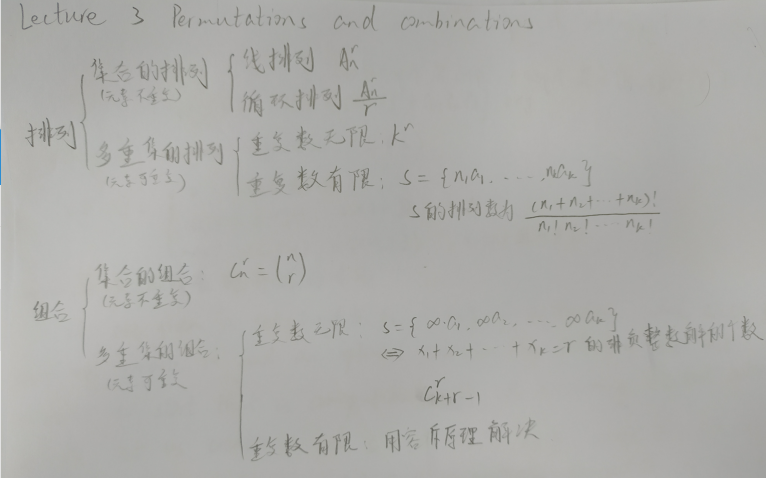 Lecture 3 Permutations and combinations
排列
集合的排列
(元素不重复)
线排列 Aₙʳ
循环排列 Aₙʳ/r
多重集的排列
(元素可重复)
重复数无限. kʳ
重复数有限: S = {n₁a₁, ..., nₖaₖ}
S的排列数为 (n₁+n₂+...+nₖ)!/(n₁! n₂! ... nₖ!)
组合
集合的组合: Cₙʳ = (n r)
(元素不重复)
多重集的组合:
(元素可重复
重复数无限: S = {∞·a₁, ∞a₂, ..., ∞aₖ}
⇔ x₁+x₂+...+xₖ=r 的非负整数解的个数
Cʳₖ₊ᵣ₋₁
重复数有限: 用容斥原理解决